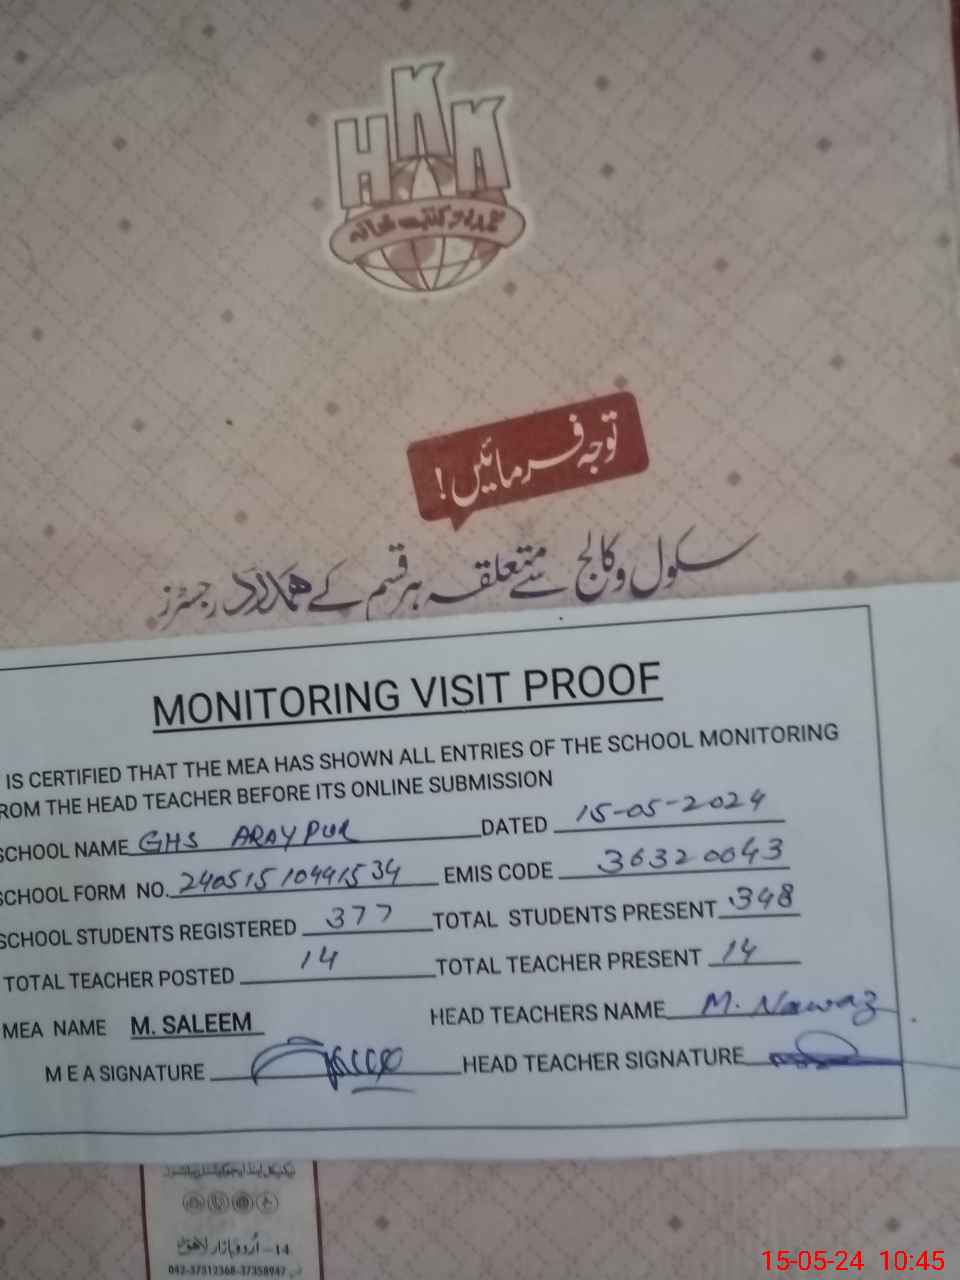 HKK
ہمدرد کتب خانہ
توجہ فرمائیں!
سکول و کالج سے متعلقہ ہر قسم کے ہمدرد رجسٹرز
MONITORING VISIT PROOF
IS CERTIFIED THAT THE MEA HAS SHOWN ALL ENTRIES OF THE SCHOOL MONITORING
ROM THE HEAD TEACHER BEFORE ITS ONLINE SUBMISSION
SCHOOL NAME GHS ARAYPUR DATED 15-05-2024
SCHOOL FORM NO. 24051510441534 EMIS CODE 36320043
SCHOOL STUDENTS REGISTERED 377 TOTAL STUDENTS PRESENT 348
TOTAL TEACHER POSTED 14 TOTAL TEACHER PRESENT 14
MEA NAME M. SALEEM HEAD TEACHERS NAME M. Nawaz
M E A SIGNATURE HEAD TEACHER SIGNATURE
14-اُردو بازار لاہور
042-37312368-37358947
15-05-24 10:45